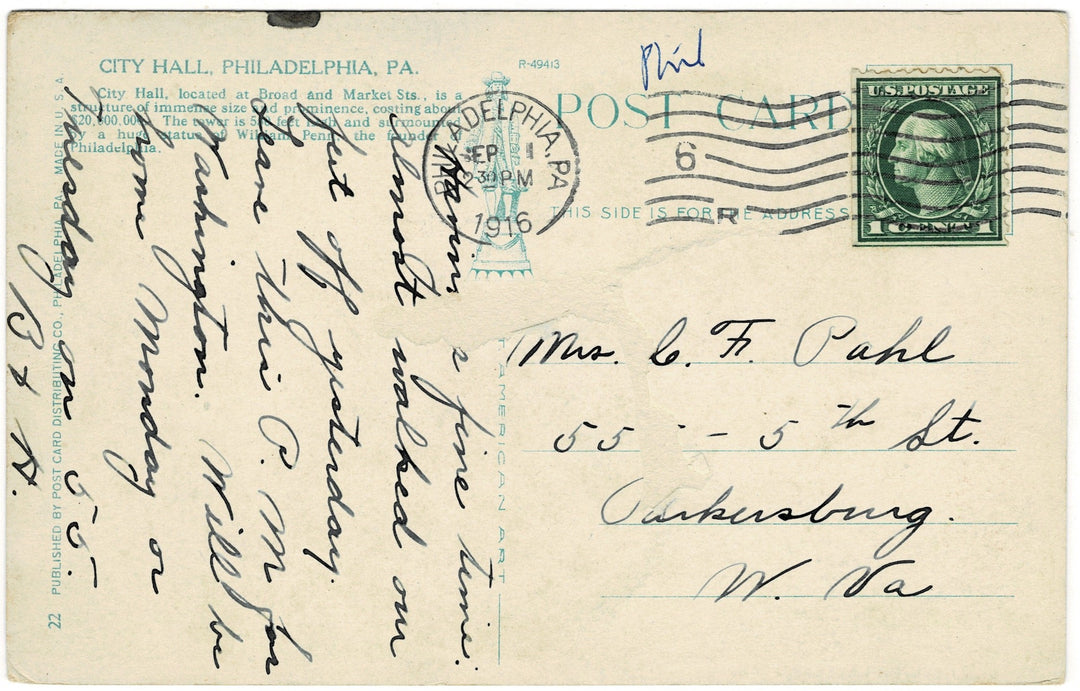 CITY HALL, PHILADELPHIA, PA.
City Hall, located at Broad and Market Sts., is a
structure of immense size and prominence, costing about
$20,000,000. The tower is feet high and surmounted
by a huge statue of William Penn, the founder of
Philadelphia.
R-49413
Phil
POST CARD
THIS SIDE IS FOR THE ADDRESS
PHILADELPHIA, PA
SEP 1
2 30 PM
1916
6
R
U.S. POSTAGE
1 CENTS 1
Having a fine time.
Almost walked our
feet off yesterday.
Leave this P. M for
Washington. Will be
home Monday or
Tuesday on 55.
B & H.
Mrs. C. F. Pahl
55 - 5th St.
Parkersburg.
W. Va
AMERICAN ART
22 PUBLISHED BY POST CARD DISTRIBUTING CO., PHILADELPHIA, PA. MADE IN U.S.A.